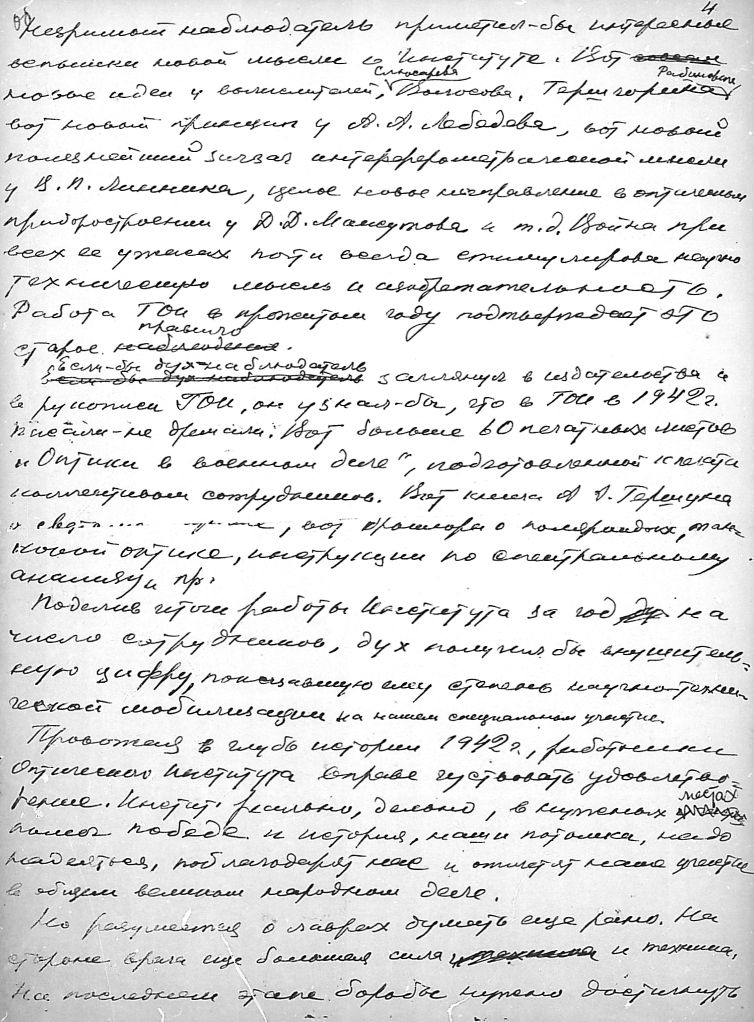 об 4
Незримый наблюдатель приметил-бы интересные
вспышки новой мысли в Институте. Вот совсем
Слюсарева Рабиновича
новые идеи у вычислителей, Волосова, Гершгорина
вот новый принцип у А. А. Лебедева, вот новый
полезнейший зигзаг интерферометрической мысли
у В. П. Линника, целое новое направление в оптическом
приборостроении у Д. Д. Максутова и т.д. Война при
всех ее ужасах почти всегда стимулировала научно
техническую мысль и изобретательность.
Работа ГОИ в прожитом году подтверждает это
правило
старое наблюдение.
если-бы дух-наблюдатель
если бы дух наблюдатель заглянул в издательства и
в рукописи ГОИ, он узнал-бы, что в ГОИ в 1942 г.
писали-не дремали. Вот больше 60 печатных листов
"Оптики в военном деле", подготовленной к печати
коллективом сотрудников. Вот книга А. А. Гершуна
о , вот брошюра о поляроидах, тан-
ковой оптике, инструкции по спектральному
анализу и пр.
Поделив итоги работы Института за год на
число сотрудников, дух получил бы внушитель-
ную цифру, показавшую ему степень научно-техни-
ческой мобилизации на нашем специальном участке.
Провожая в глубь истории 1942 г., работники
Оптического Института вправе чувствовать удовлетво-
местах
рение. Институт реально, дельно, в нужных
помог победе и история, наши потомки, надо
надеяться, поблагодарят нас и отметят наше участие
в общем великом народном деле.
Но разумеется о лаврах думать еще рано. На
стороне врага еще большая сила и техника и техника.
На последнем этапе борьбы нужно достигнуть